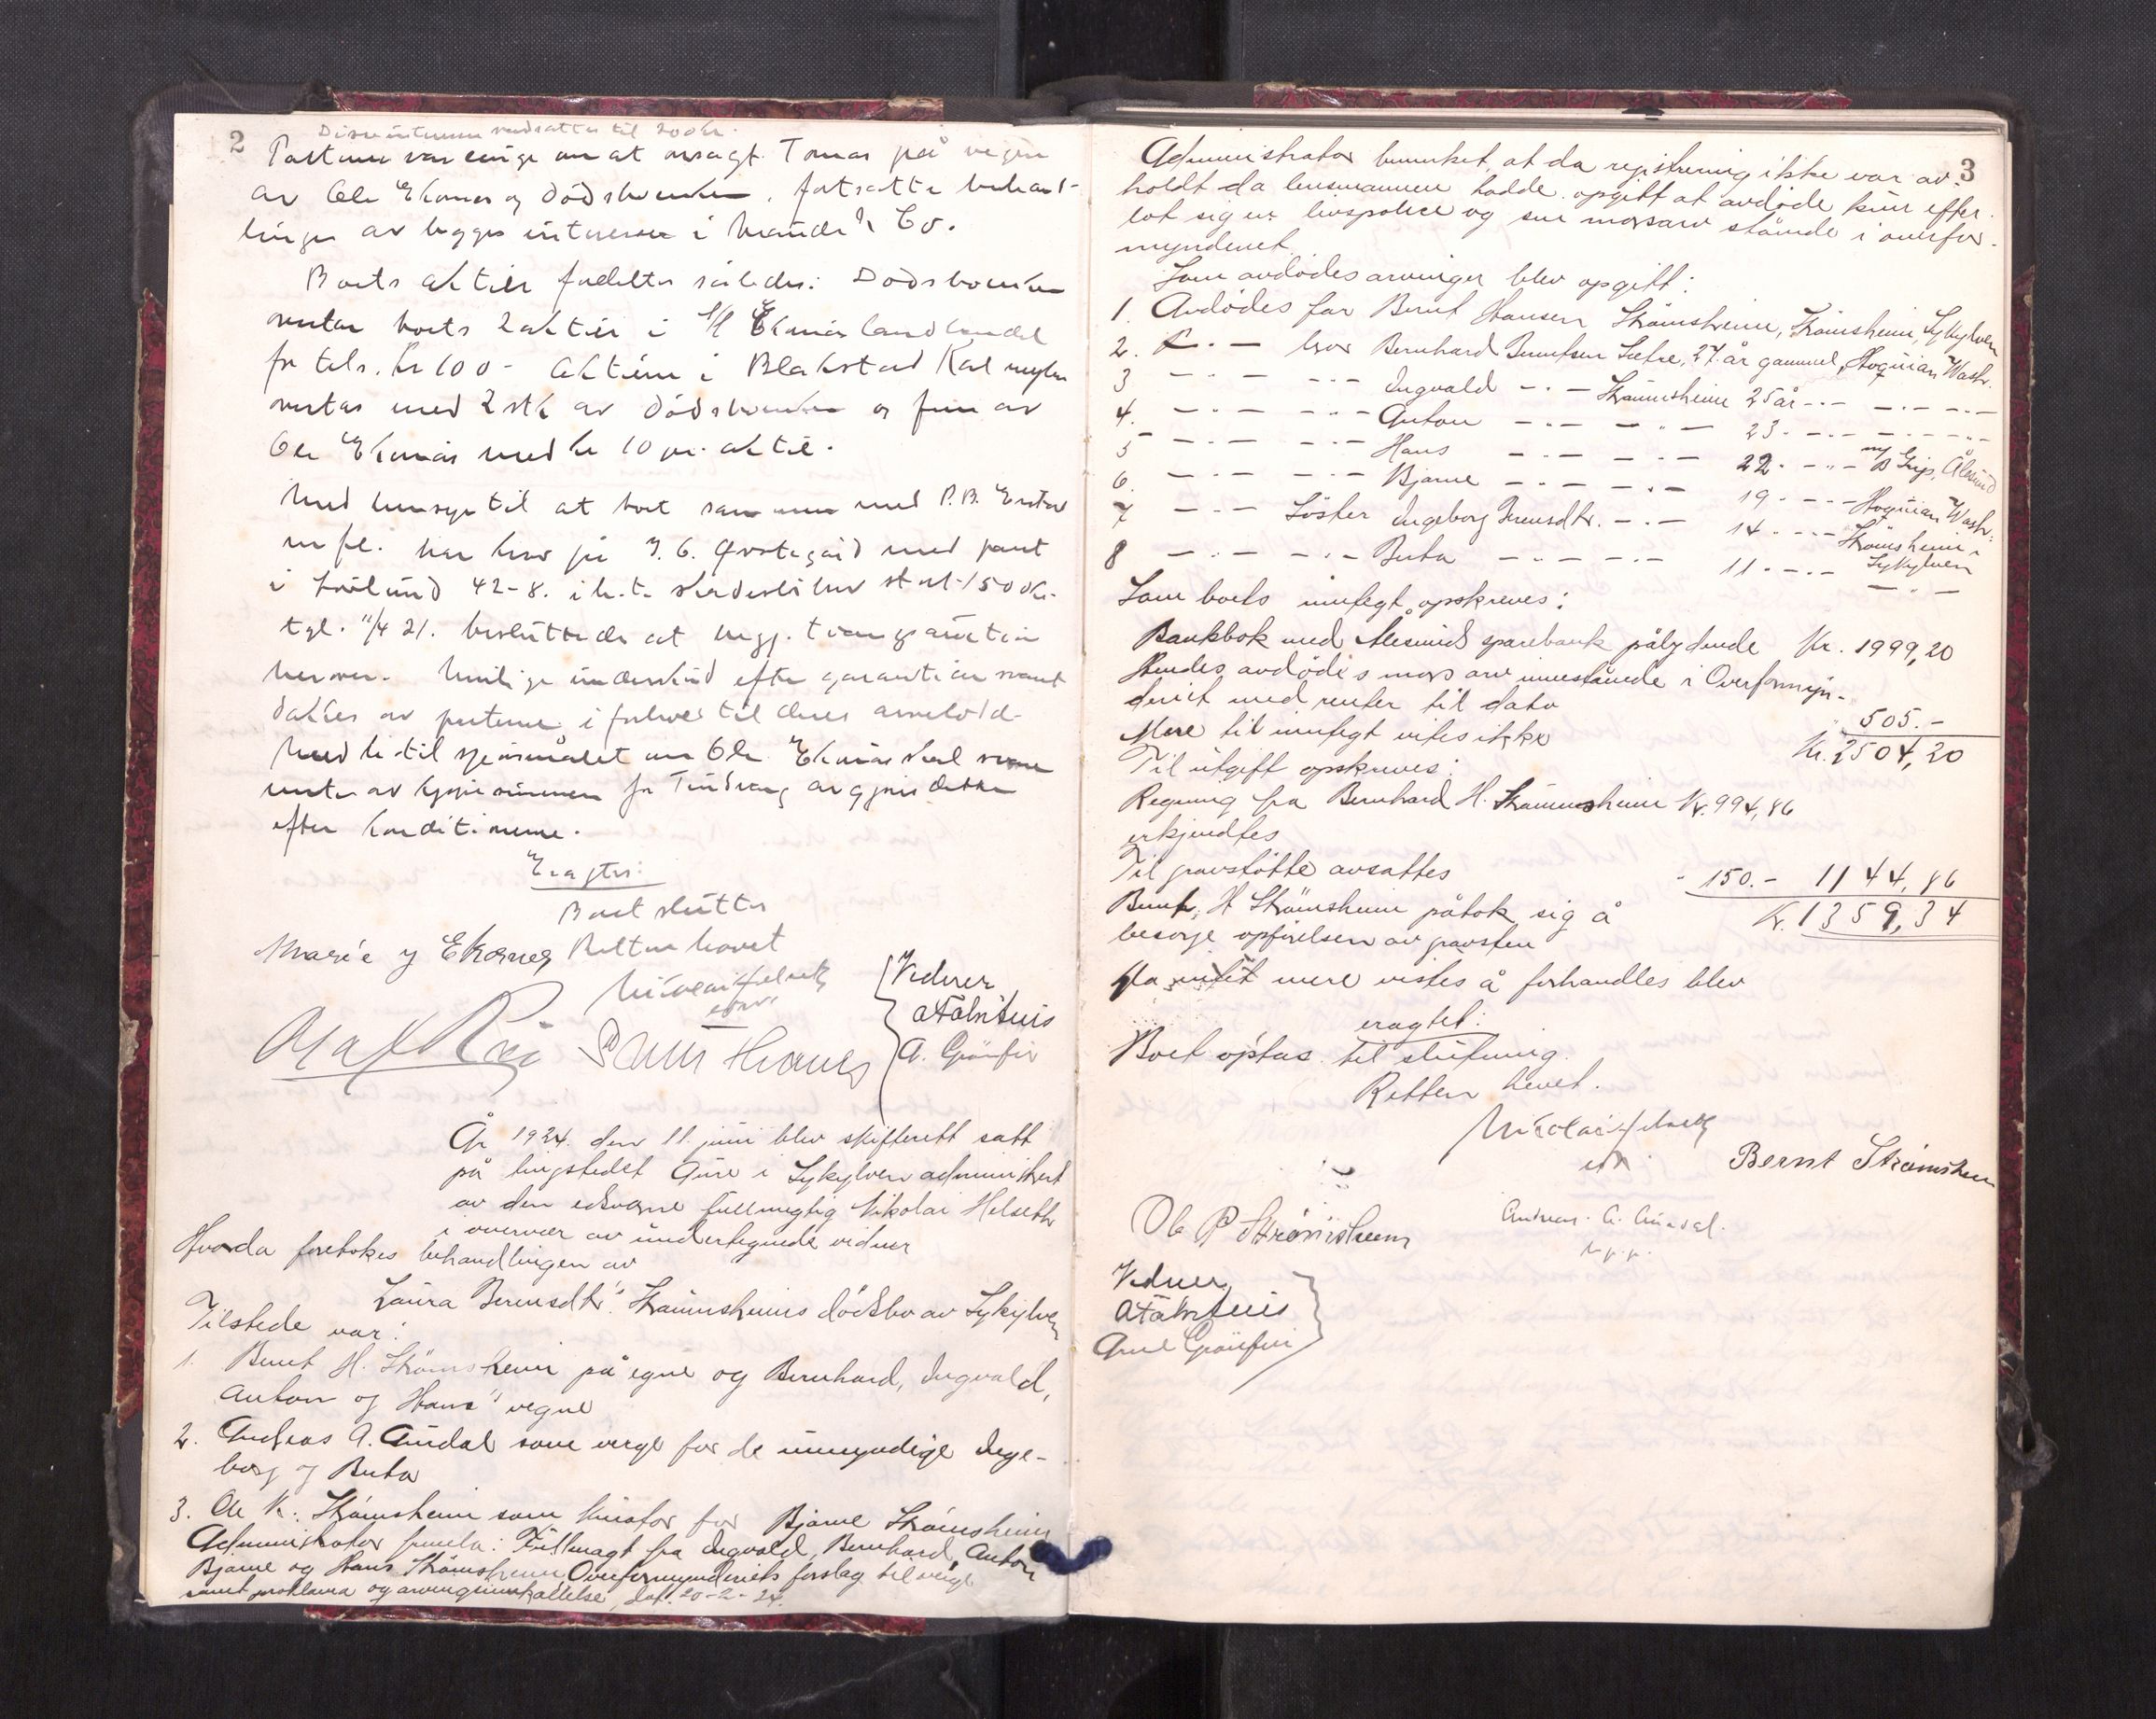 2
til 200 kr.
Partene var enige om at overdragt. Tomas på vegne
av Ole Ekornes og Dødsboenken, fortsatte behand-
lingen av begges interesser i & Co.
Boets aktier fordeltes således: Dødsboenken
overtar boets 2 aktier i A/S Ekornes landhandel
for tils. kr 100- Aktiene i Blakstad
overtas med 2 stk av Dødsboenken og fem av
Ole Ekornes med kr 10 pr. aktie.
Med hensyn til at boet sammen med P.B.
m fl. har krav på J. G. Øvstegård med pant
i 42-8. i h.t. skadesløsbrev stort 1500 kr.
tgl. 11/4 21. besluttedes at
herover. underskud efter garantien
dækkes av partene i forhold til deres arvelod.
Med h. til spørsmålet om Ole Ekornes skal
av for avgjøres dette
efter konditionerne.
Eragtes:
Boet sluttes
Marie J Ekornes Retten hævet
Nicolai Helseth
Vidner
A. Grönfur
År 1924 den 11. juni blev skifterett satt
på tingstedet Aure i Sykylven administrert
av den edsvorne fullmegtig Nikolai Helseth
i overvær av undertegnede vidner
Hvorda foretokes behandlingen av
Laura Berensdtr. Strømsheims dødsbo av Sykylven
Tilstede var:
1. Bernt H. Strømsheim på egne og Bernhard, Ingvald,
Anton og Hans' vegne
2. Andreas A. Aurdal som verge for de umyndige Inge-
borg og Berta
3. Ole K. Strømsheim som kurator for Bjarne Strømsheim
Administrator fremla: Fullmagt fra Ingvald, Bernhard, Anton
Bjarne og Hans Strømsheim, Overformynderiets forslag til verge
samt proklama og arvingsinnkallelse, dat. 20-2-24.
3
Administrator bemerket, at da registrering ikke var av-
holdt da lensmannen hadde opgitt at avdøde kun efter-
lot sig en livspolice og sin morsarv stående i overfor-
mynderiet.
Som avdødes arvinger blev opgitt:
1. Avdødes far Bernt Hansen Strømsheim, Strømsheim, Sykylven
2. — . — bror Bernhard Berntsen Sætre, 27 år gammel, Hoquian Wash.
3 — . — — . — Ingvald — . — Strømsheim 25 år — . — — . — — . —
4. — . — — . — Anton — . — — . — 23 . — . — — . — — . —
5 — . — — . — Hans — . — — . — 22 . — . — B Grip, Ålesund
6. — . — — . — Bjarne — . — — . — 19 . — . — Hoquian Wash.
7 — . — Söster Ingeborg Berensdtr. — . — 14 . — . — Strømsheim i
Sykylven
8 — . — — . — Berta — . — — . — 11 . — . — — . —
Som boets inntegt opskreves:
Bankbok med Ålesunds sparebank pålydende Kr. 1999,20
Hendes avdødes mors arv innestående i Overformyn-
deriet med renter til dato 505.-
Mere til inntegt vites ikke Kr. 2504,20
Til utgift opskreves:
Regning fra Bernhard H. Strømsheim Kr. 994,86
erkjendtes
Til gravstötte avsattes - 150.- 1144,86
Bernt H Strømsheim påtok sig å Kr. 1359,34
besørge opførelsen av gravsten
Da intet mere vistes å forhandles blev
eragtet:
Boet optas til slutning.
Retten hevet.
Nicolai Helseth
Bernt Strømsheim
Ole P Strømsheim
Andreas A. Aurdal.
m.p.p.
Vidner
Arne Grönfur